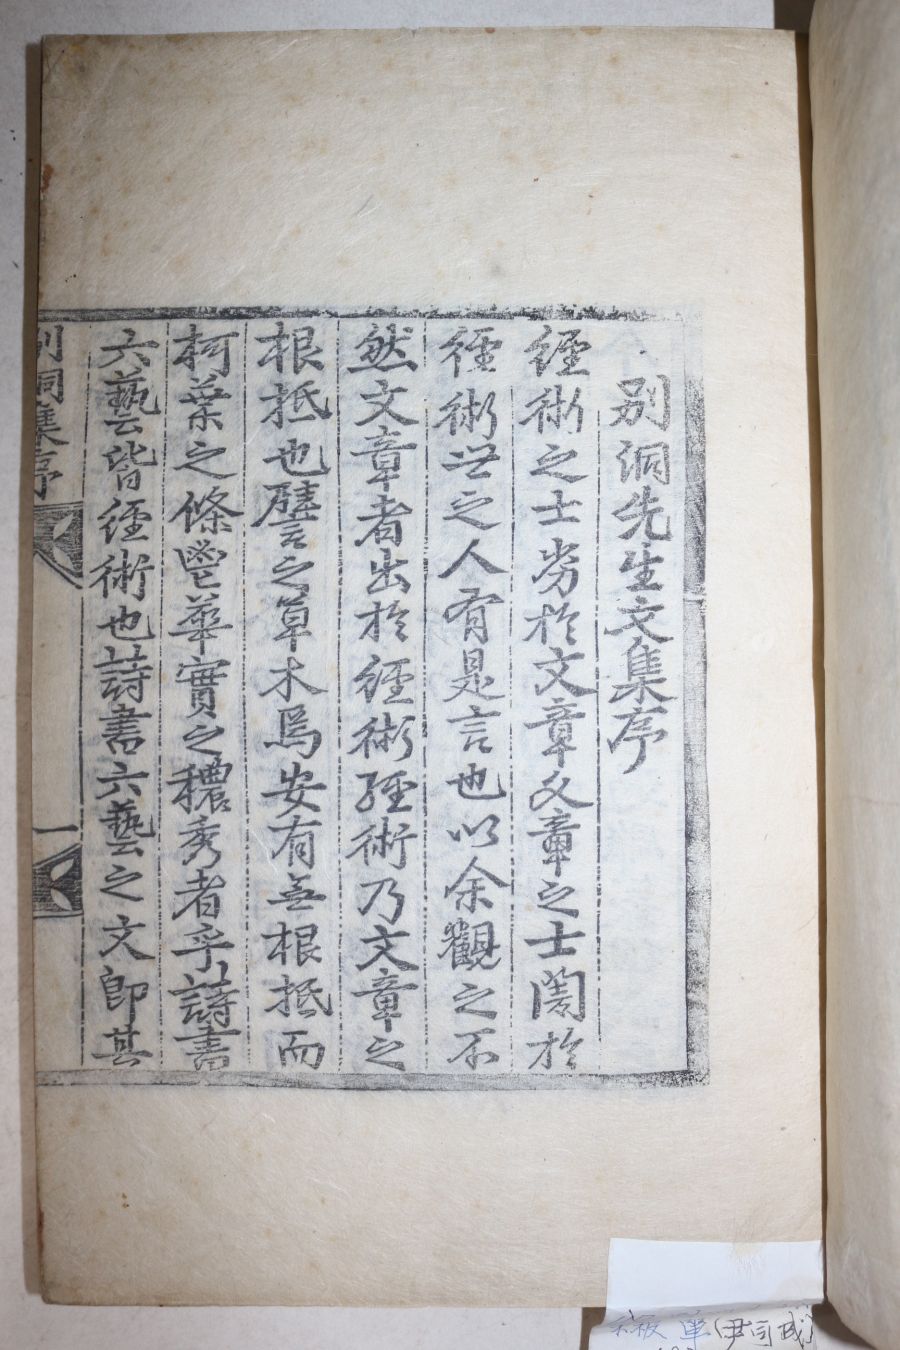 別洞先生文集序
經術之士劣於文章文章之士闇於
經術世之人有是言也以余觀之不
然文章者出於經術經術乃文章之
根柢也譬之草木焉安有無根柢而
柯葉之條鬯華實之穠秀者乎詩書
六藝皆經術也詩書六藝之文卽其
別洞集序
一
尹司成